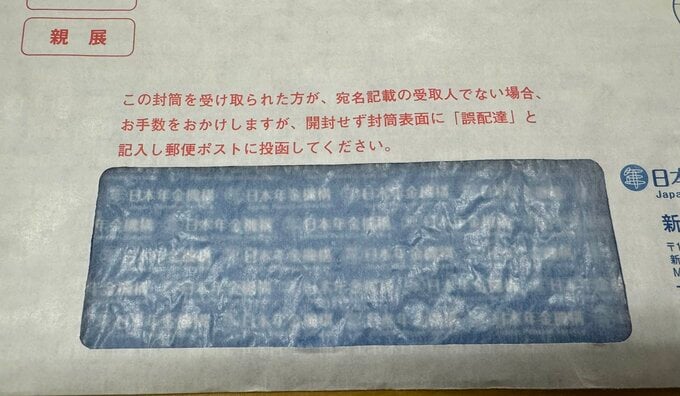 親展
この封筒を受け取られた方が、宛名記載の受取人でない場合、
お手数をおかけしますが、開封せず封筒表面に「誤配達」と
記入し郵便ポストに投函してください。
日本年金機構 日本年金機構
日本年金機構 日本年金機構
日本年金機構 日本年金機構
日本年金機構 日本年金機構
日本
Japa
新
〒1
新